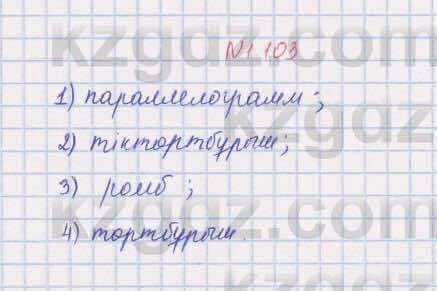 kzgdz.com
№1.103
1) параллелограмм;
2) тіктортбұрыш;
3) ромб;
4) тортбұрыш.